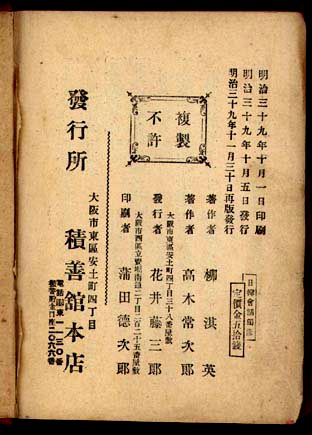 明治三十九年十月一日印刷
明治三十九年十月五日發行
明治三十九年十一月三十日再版發行
日韓會話獨
定價金五拾錢
複製
不許
著作者 柳淇英
著作者 高木常次郎
大阪市東區安土町四丁目三十八番屋敷
發行者 花井藤三郎
大阪市西區立賣堀南通二丁目二百二十五番屋敷
印刷者 蒲田德次郎
大阪市東區安土町四丁目
發行所 積善館本店
電話園東一一三〇番
振替貯金口座二〇六六番